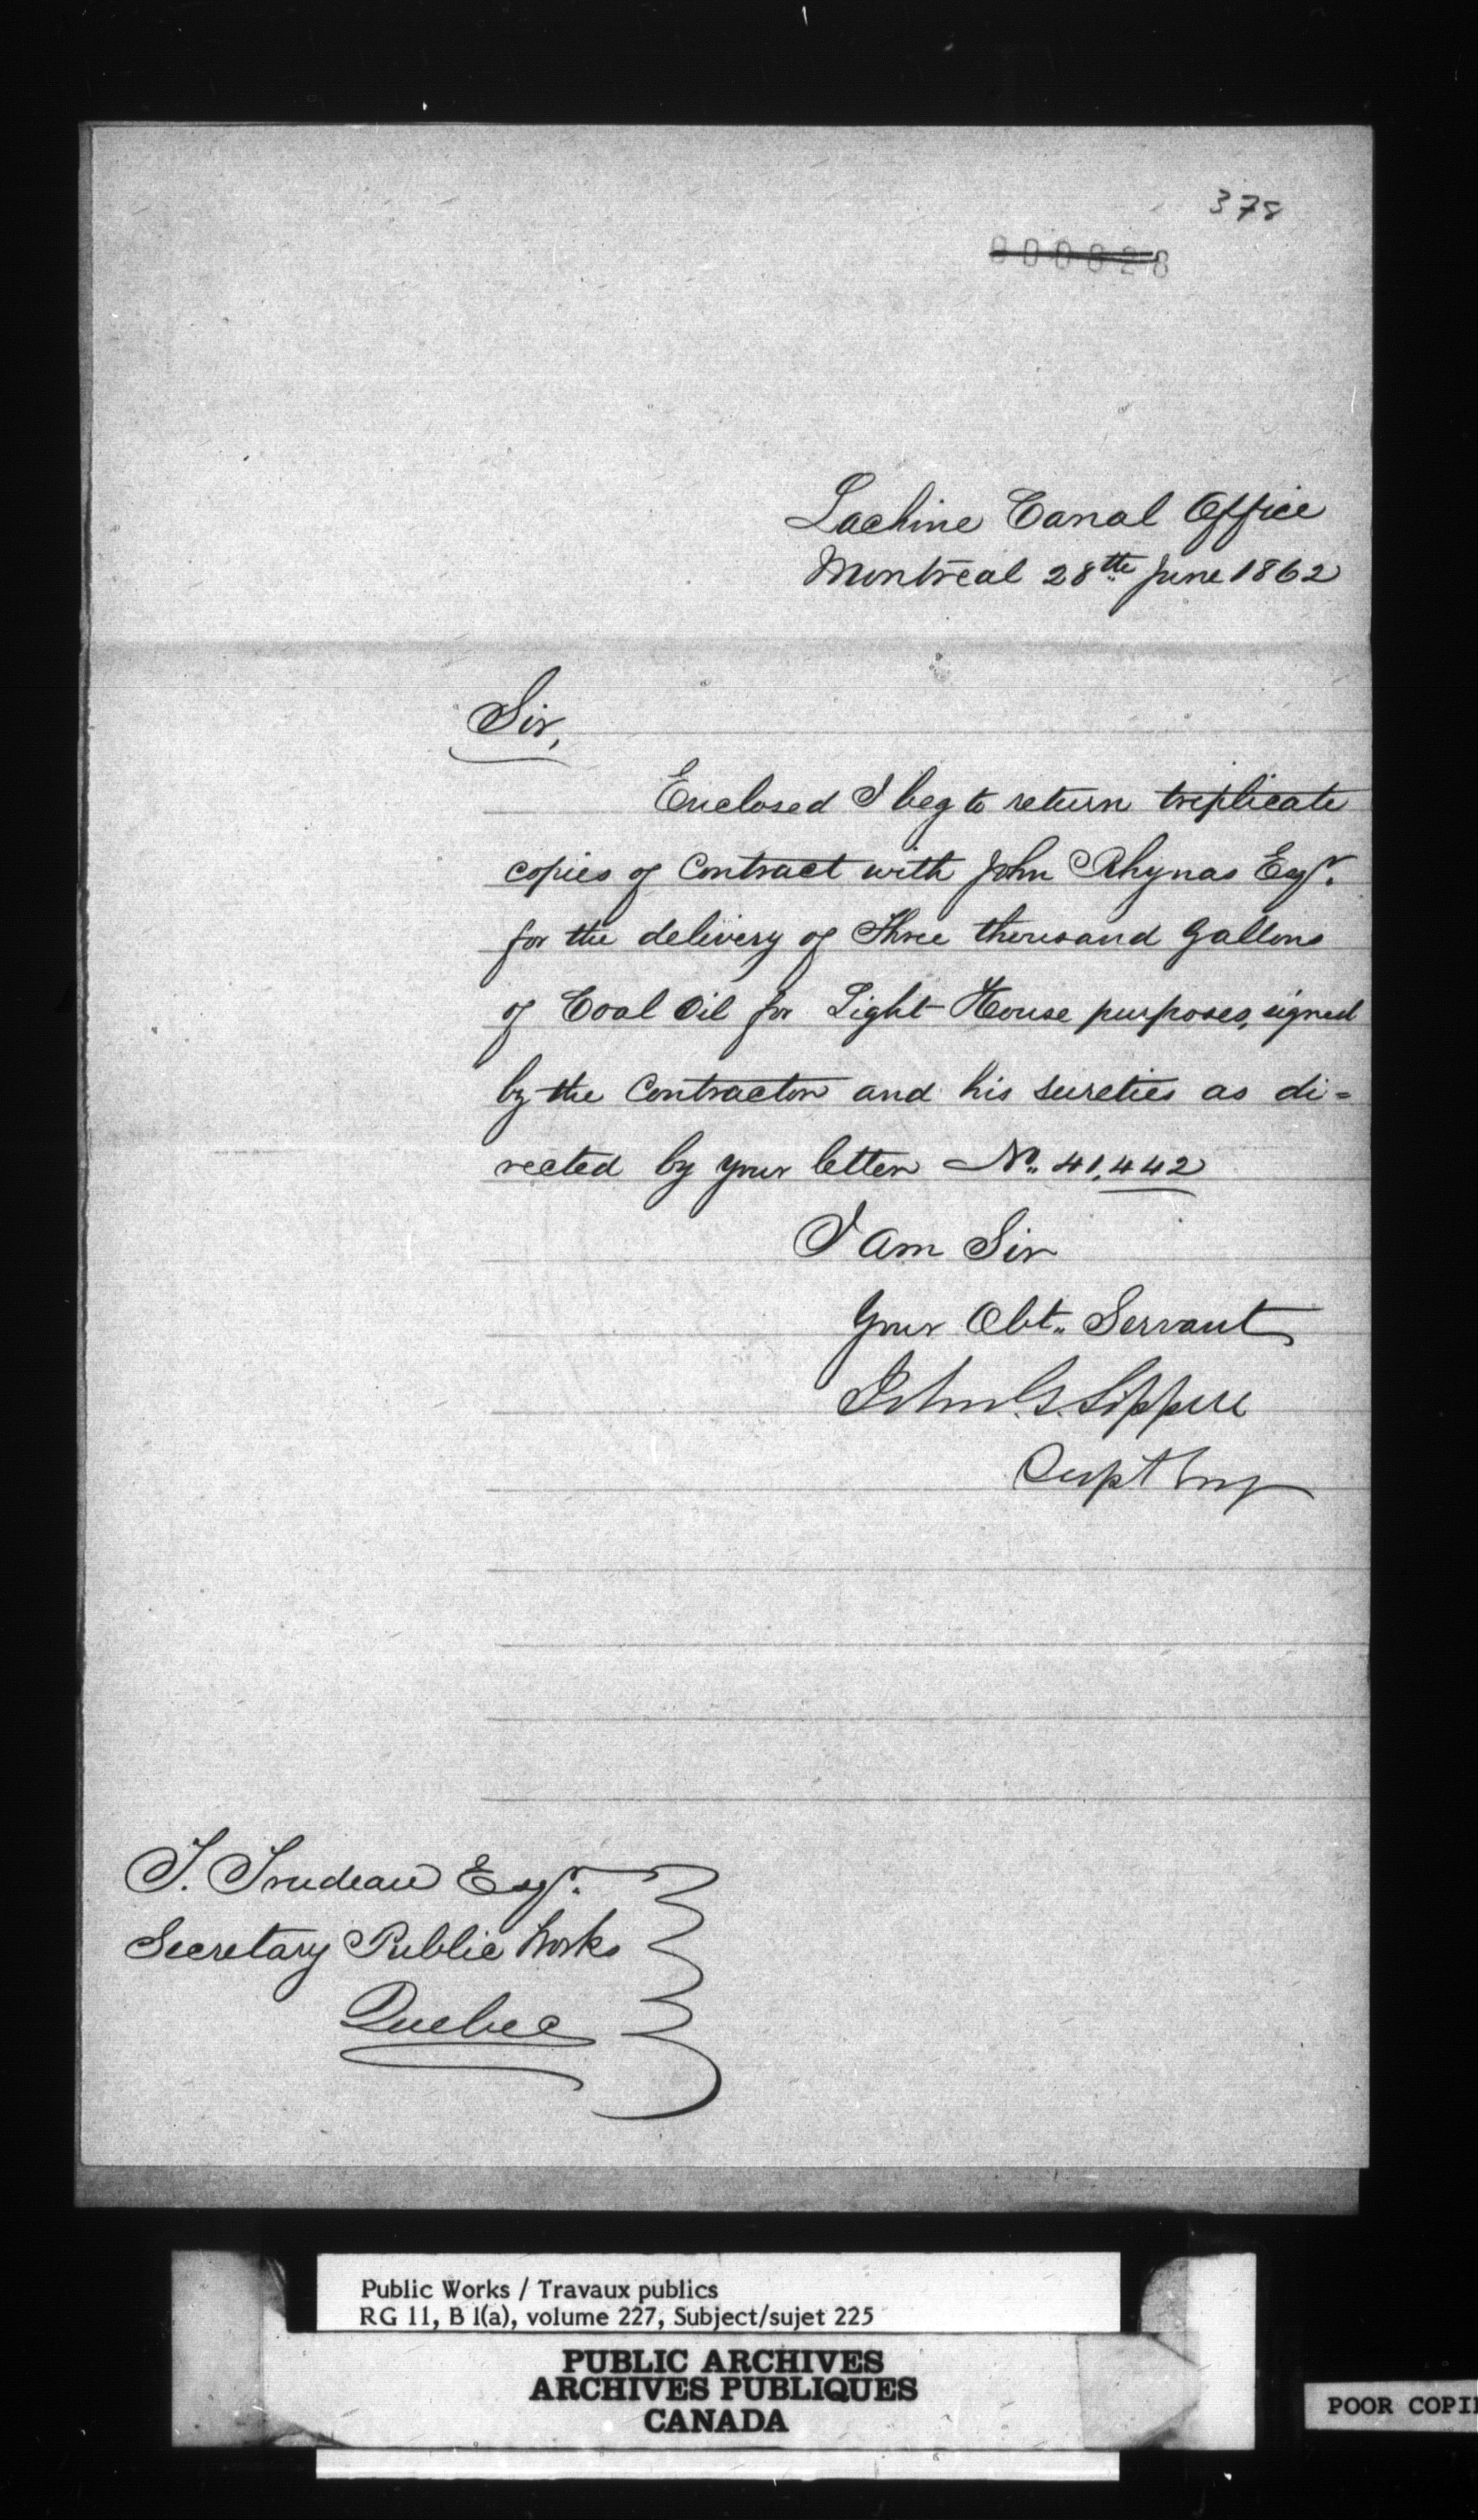 378
000828
Lachine Canal Office
Montreal 28th June 1862
Sir,
Enclosed I beg to return triplicate
copies of Contract with John Rhynas Esqr.
for the delivery of Three thousand Gallons
of Coal Oil for Light-House purposes, signed
by the Contractor and his sureties as di=
rected by your letter No. 41,442
I am Sir
Your Obt. Servant
John G. Sippell
Supt Eng
T. Trudeau Esqr.
Secretary Public Works
Quebec
Public Works / Travaux publics
RG 11, B 1(a), volume 227, Subject/sujet 225
PUBLIC ARCHIVES
ARCHIVES PUBLIQUES
CANADA
POOR COPI